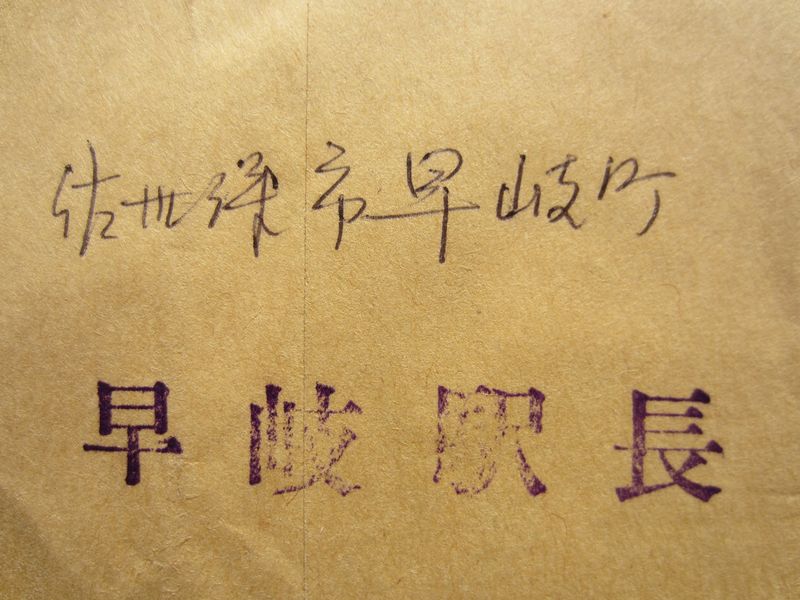 佐世保市早岐町
早岐駅長